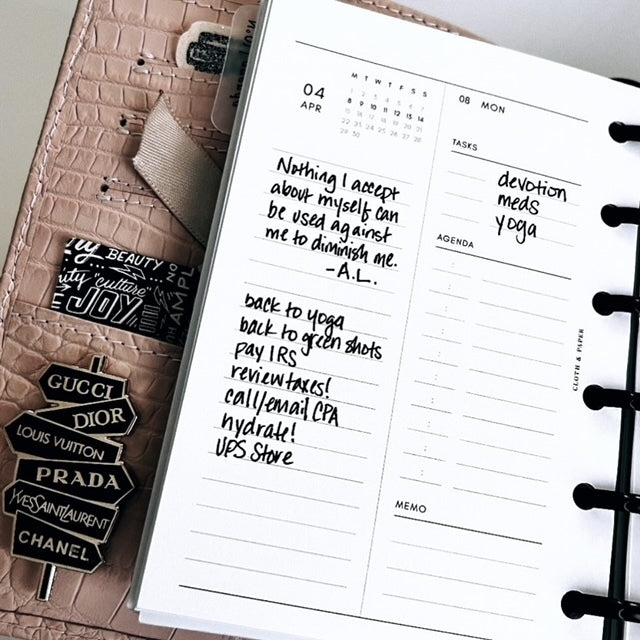 04
APR
M T W T F S S
1 2 3 4 5 6 7
8 9 10 11 12 13 14
15 16 17 18 19 20 21
22 23 24 25 26 27 28
29 30
Nothing I accept
about myself can
be used against
me to diminish me.
-A.L.
back to yoga
back to green shots
pay IRS
review taxes!
call/email CPA
hydrate!
UPS Store
08 MON
TASKS
devotion
meds
yoga
AGENDA
MEMO
CLOTH & PAPER
BEAUTY
"culture"
JOY
GUCCI
DIOR
LOUIS VUITTON
PRADA
YVESSAINTLAURENT
CHANEL